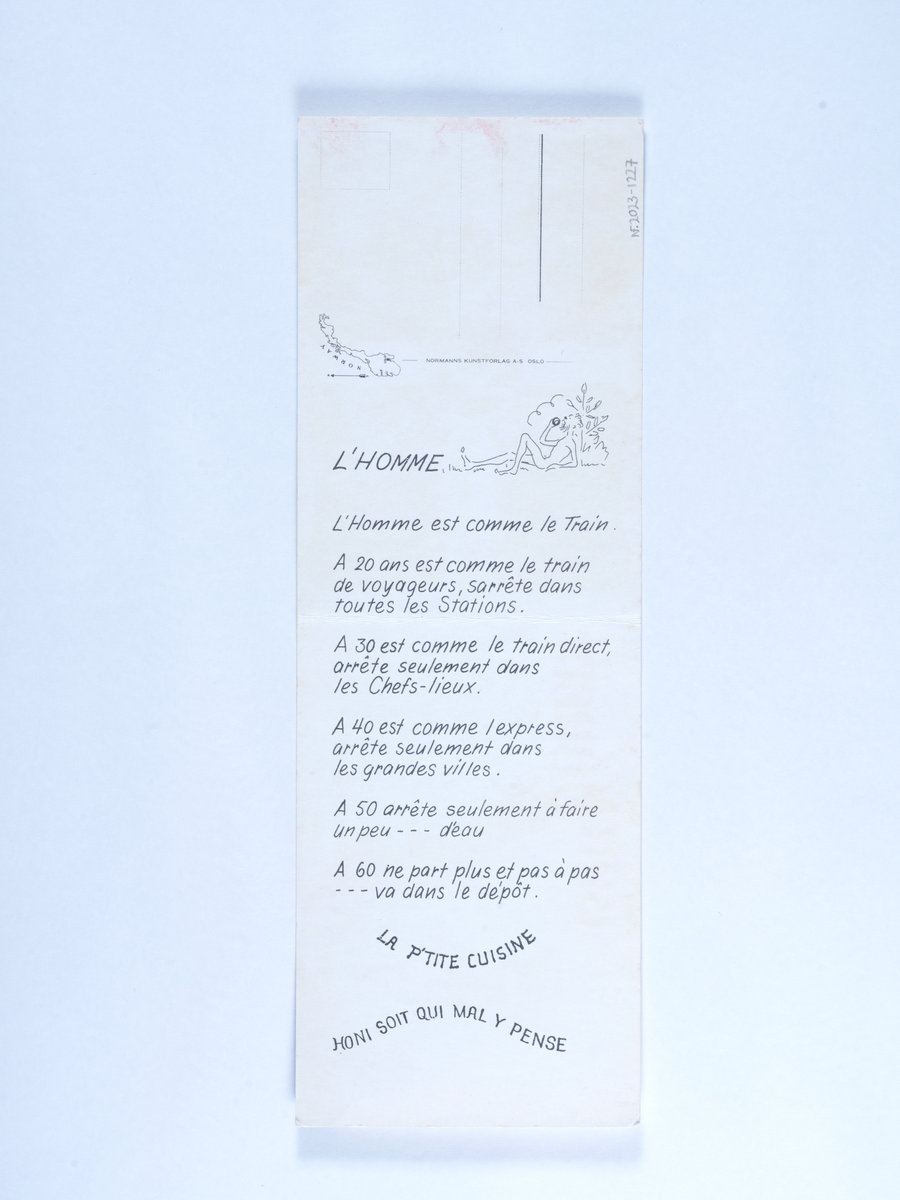 NF.2023-1227
NORWAY
NORMANNS KUNSTFORLAG A·S OSLO
L'HOMME
L'Homme est comme le Train.
A 20 ans est comme le train
de voyageurs, sarrête dans
toutes les Stations.
A 30 est comme le train direct,
arrête seulement dans
les Chefs-lieux.
A 40 est comme lexpress,
arrête seulement dans
les grandes villes.
A 50 arrête seulement à faire
un peu --- d'eau
A 60 ne part plus et pas à pas
--- va dans le dépôt.
LA P'TITE CUISINE
HONI SOIT QUI MAL Y PENSE